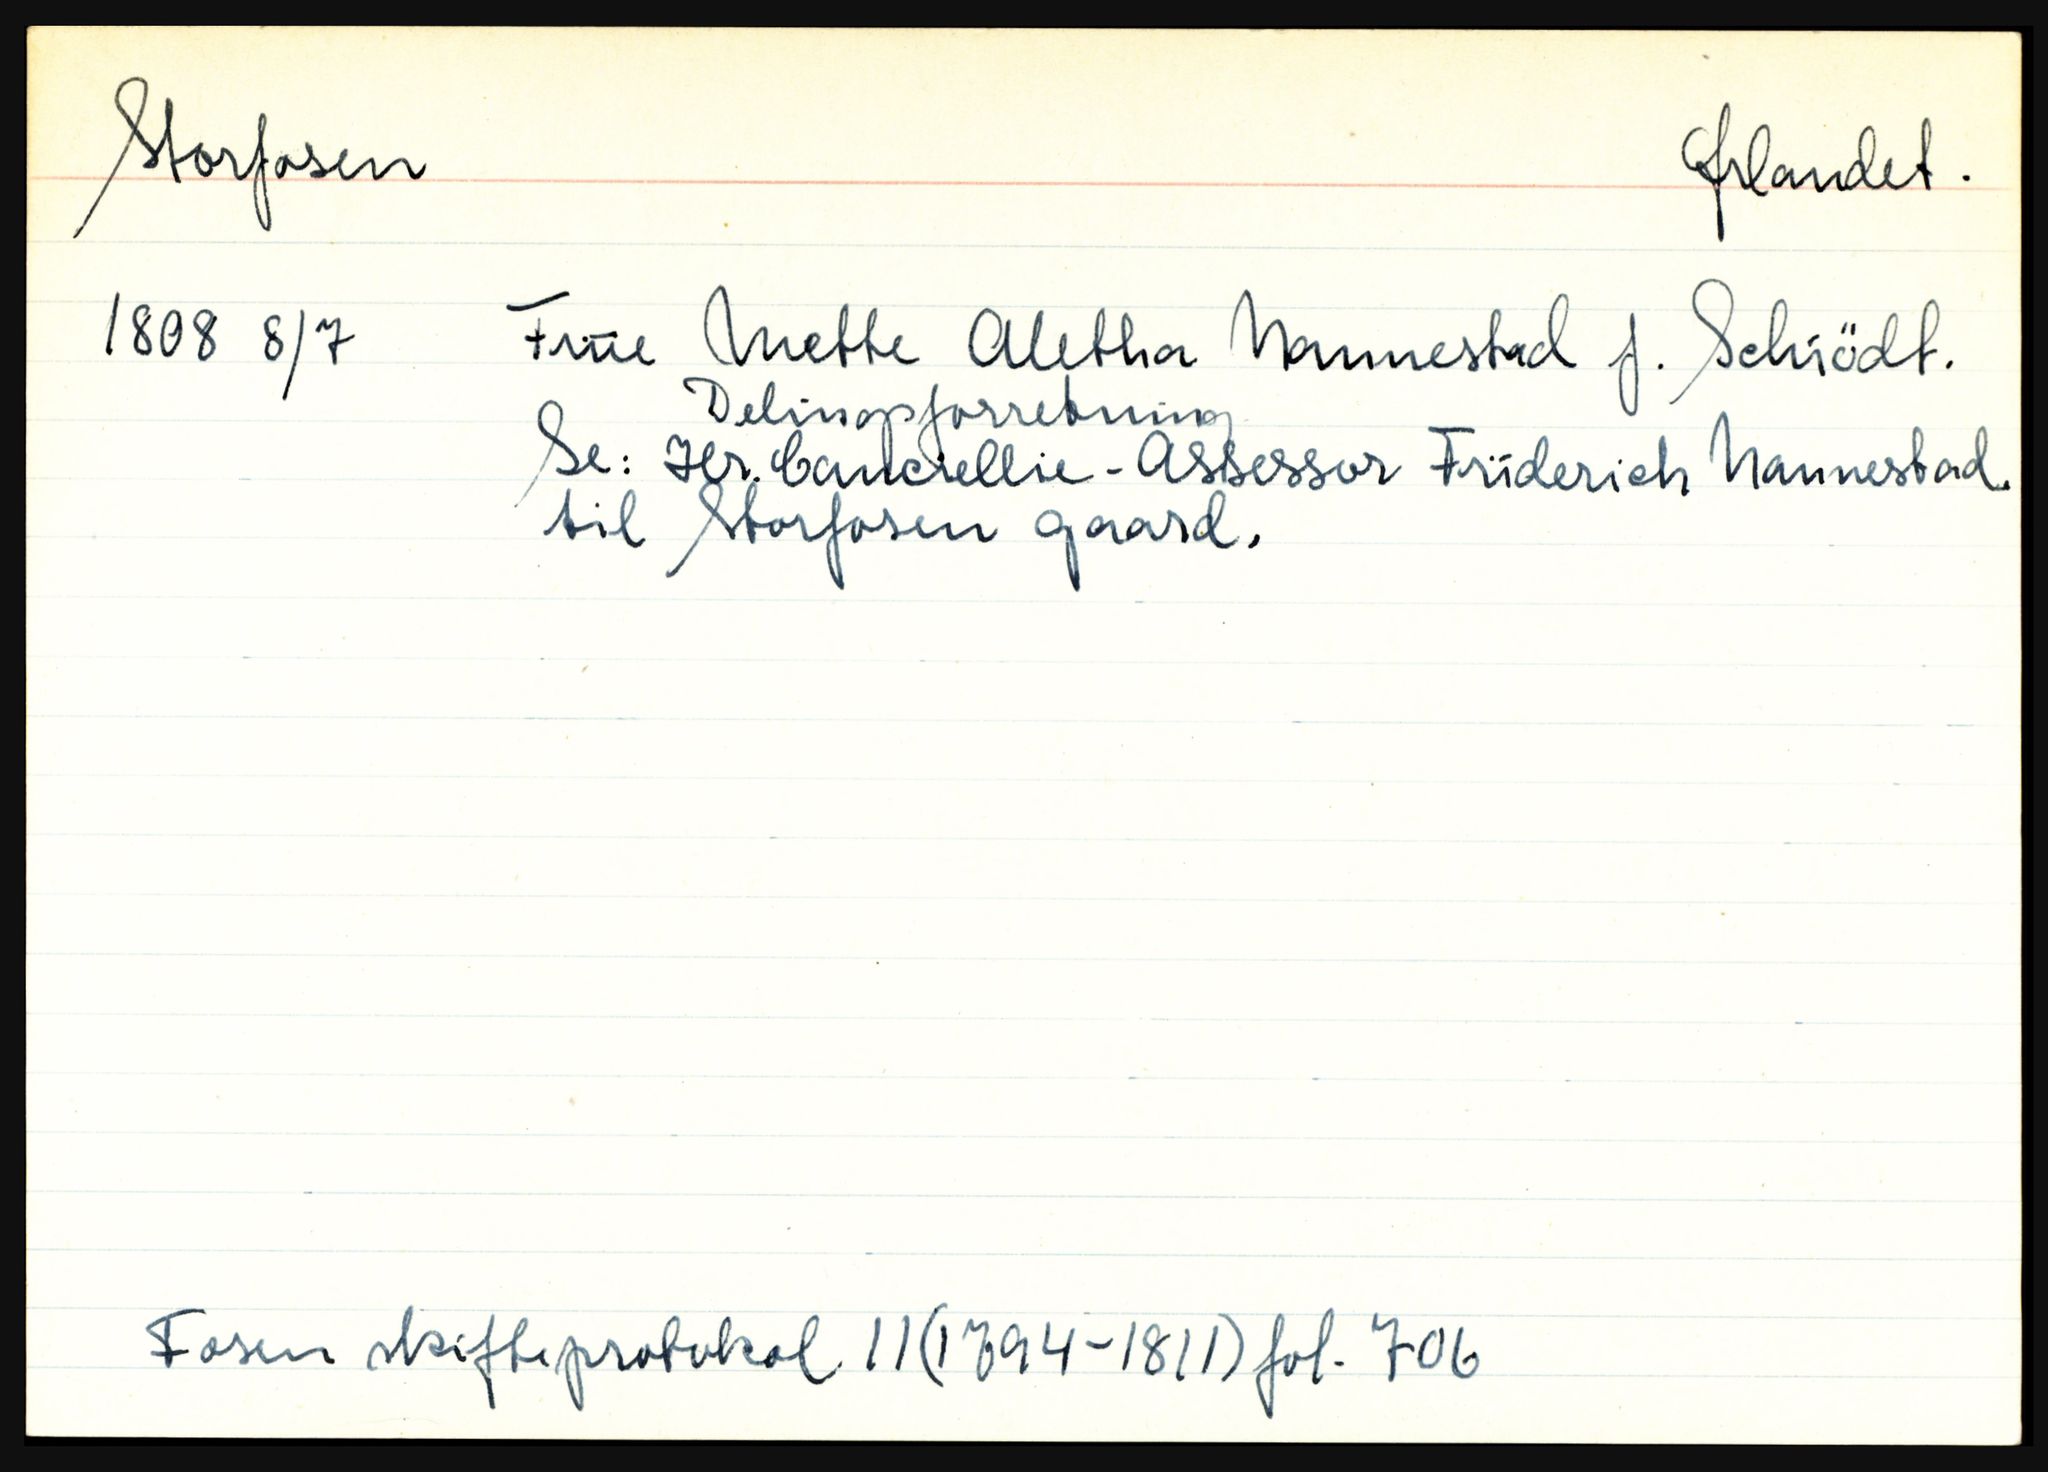 Storfosen Ørlandet.
1808 8/7 Früe Mette Aletha Nannestad f. Schiödt.
Delingsforretning
Se: Hr. Cancellie-Assessor Friderich Nannestad
til Storfosen gaard.
Fosen skifteprotokol 11 (1794-1811) fol. 706